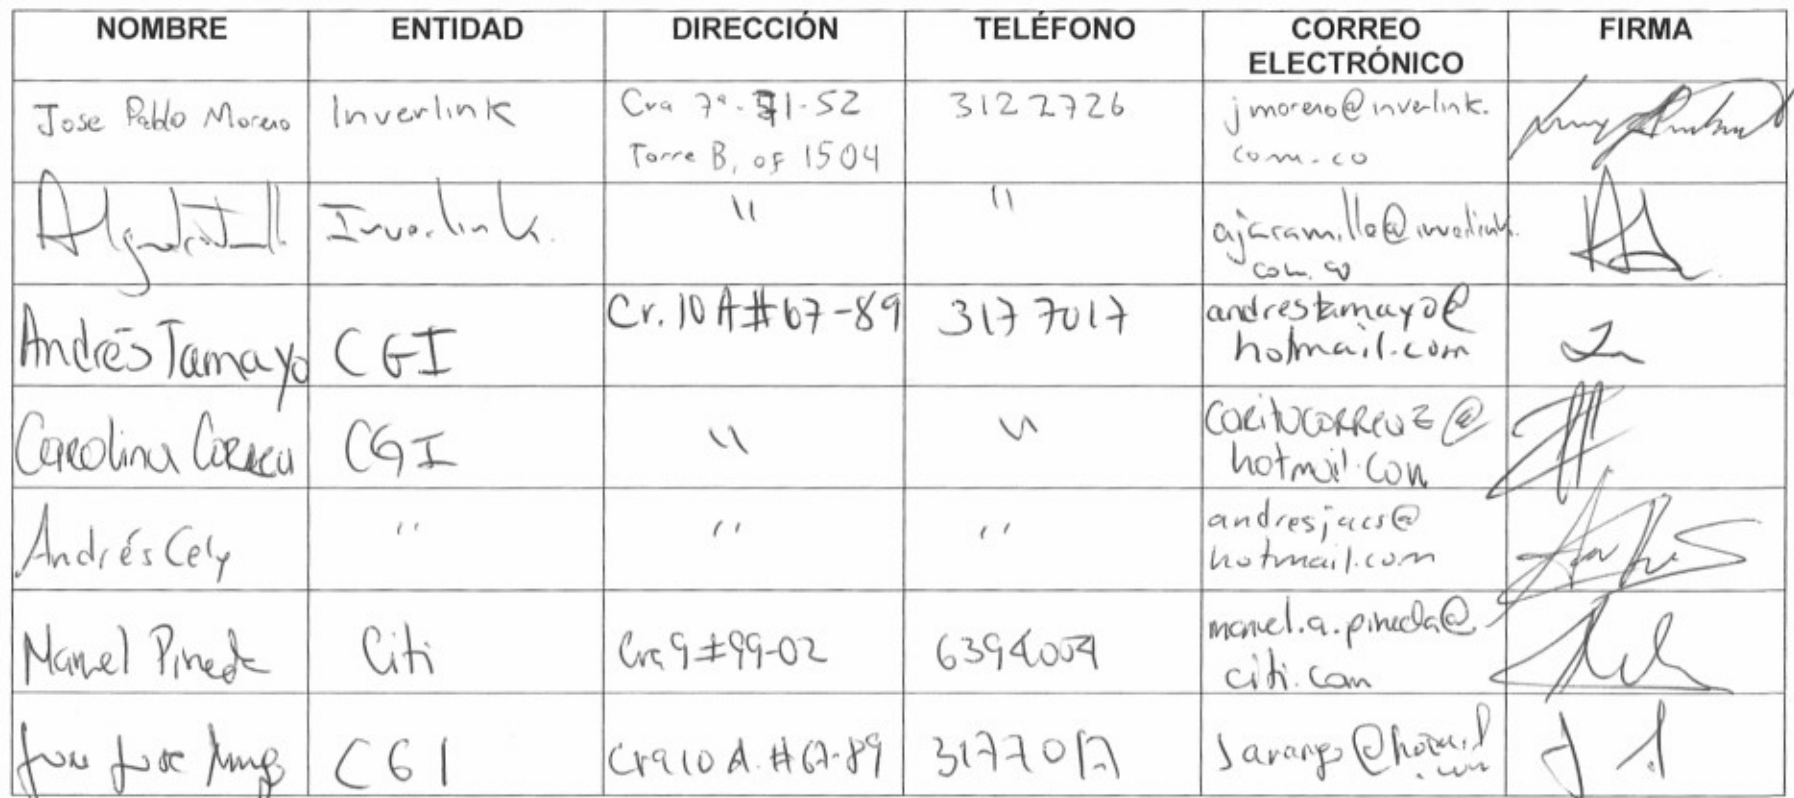 NOMBRE ENTIDAD DIRECCIÓN TELÉFONO CORREO ELECTRÓNICO FIRMA
Jose Pablo Moreno Inverlink Cra 7ª. 71-52 3122726 jmoreno@inverlink.
Torre B, of 1504 com.co
Inverlink. " " ajaramillo@inverlink.
com.co
Andrés Tamayo CGI Cr. 10 A # 67-89 317 7017 andrestamayo@
hotmail.com
Carolina Correa CGI " " @
hotmail.com
Andrés Cely " " " andresjacs@
hotmail.com
Manuel Pineda Citi Cra 9 # 99-02 6394004 manuel.a.pineda@
citi.com
Jose CGI Cra 10 A. # 67-89 3177017 jarango@hotmail
.com